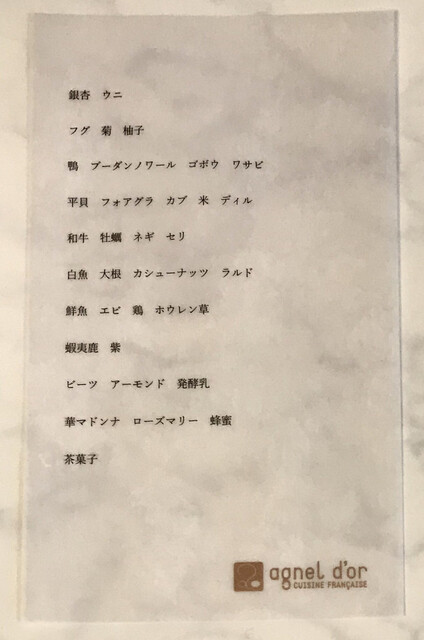 銀杏　ウニ
フグ　菊　柚子
鴨　ブーダンノワール　ゴボウ　ワサビ
平貝　フォアグラ　カブ　米　ディル
和牛　牡蠣　ネギ　セリ
白魚　大根　カシューナッツ　ラルド
鮮魚　エビ　鶏　ホウレン草
蝦夷鹿　紫
ビーツ　アーモンド　発酵乳
華マドンナ　ローズマリー　蜂蜜
茶菓子
agnel d'or
CUISINE FRANÇAISE